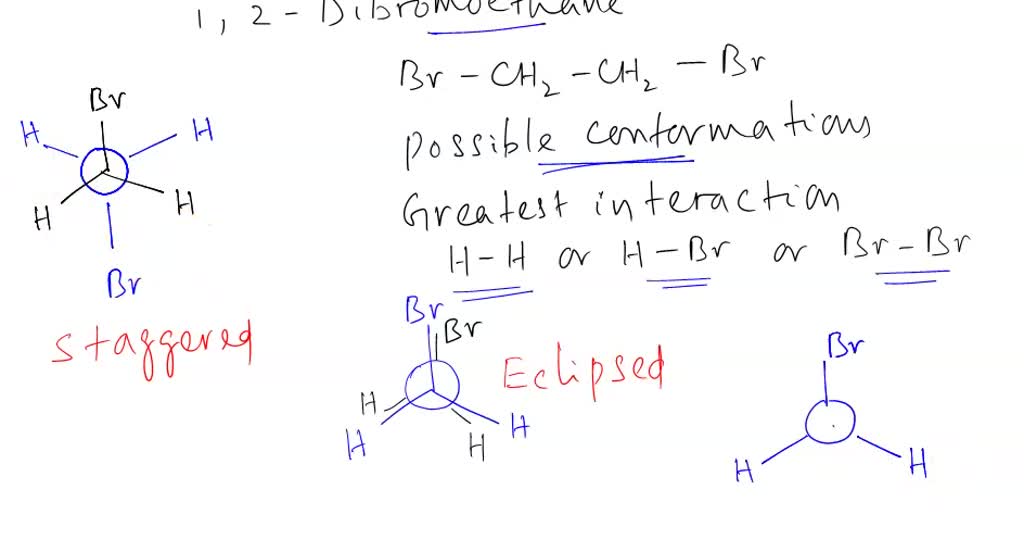 1, 2 - Dibromoethane
Br - CH2 - CH2 - Br
possible conformations
Greatest interaction
H - H or H - Br or Br - Br
Br
H
H
H
H
Br
staggered
Br
Br
H
H
H
H
Eclipsed
Br
H
H